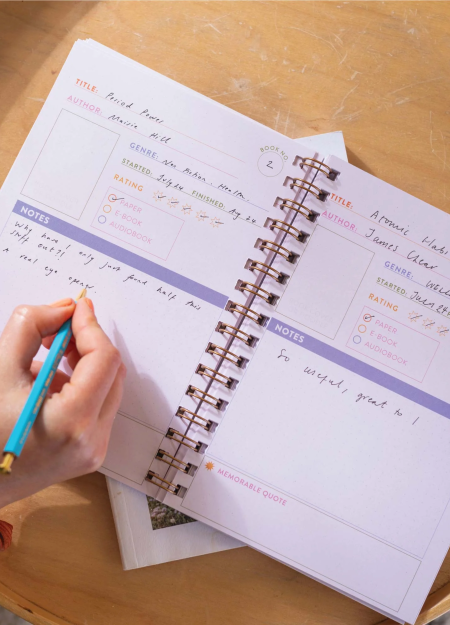 TITLE: Period Power
AUTHOR: Maisie Hill
BOOK NO
2
GENRE: Non fiction - Health
STARTED: July 24 FINISHED: Aug 24
RATING
PAPER
E-BOOK
AUDIOBOOK
NOTES
Why have I only just found half this
stuff out?!
A real eye opener
TITLE: Atomic Habi
AUTHOR: James Clear
GENRE: Well
STARTED: June 24
RATING
PAPER
E-BOOK
AUDIOBOOK
NOTES
So useful, great to
MEMORABLE QUOTE